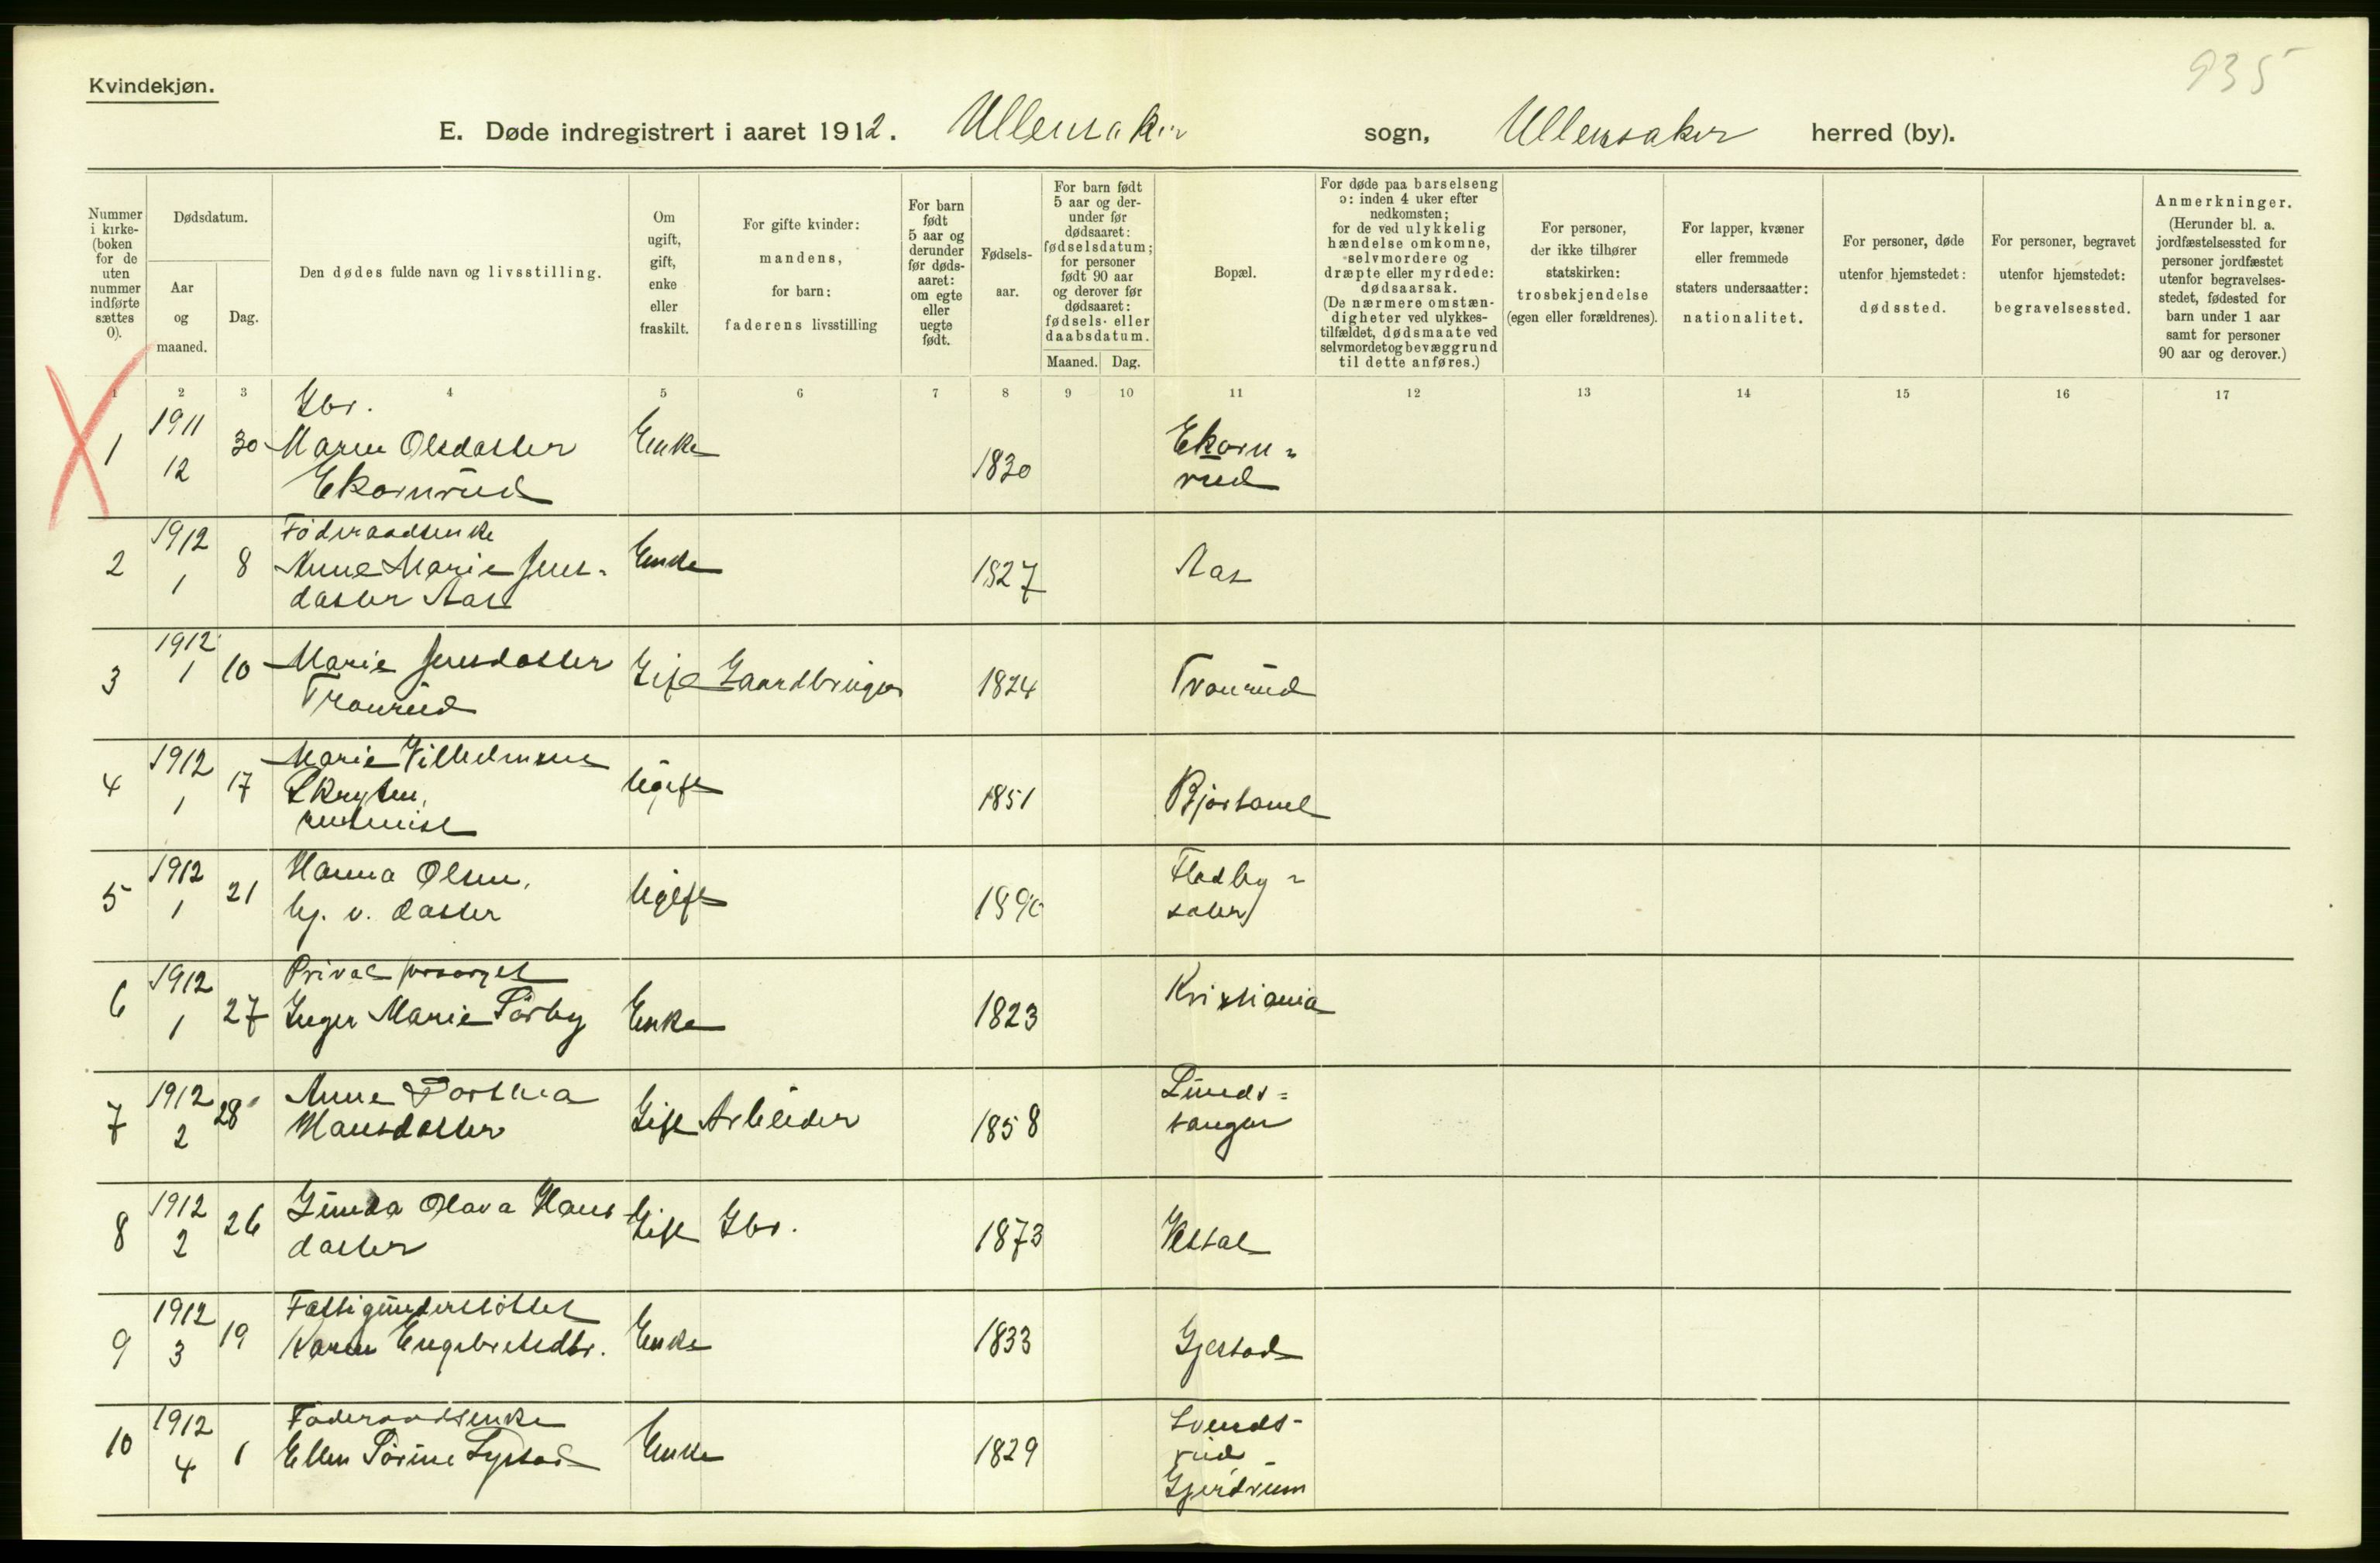 935
Kvindekjøn.
E. Døde indregistrert i aaret 1912. Ullensaker sogn, Ullensaker herred (by).
Nummer
i kirke-
(boken
for de
uten
nummer
indførte
sættes
0).
Dødsdatum.
Aar
og
maaned.
Dag.
Den dødes fulde navn og livsstilling.
Om
ugift,
gift,
enke
eller
fraskilt.
For gifte kvinder:
mandens,
for barn:
faderens livsstilling
For barn
født
5 aar og
derunder
før døds-
aaret:
om egte
eller
uegte
født.
Fødsels-
aar.
For barn født
5 aar og der-
under før
dødsaaret:
fødselsdatum;
for personer
født 90 aar
og derover før
dødsaaret:
fødsels- eller
daabsdatum.
Maaned.
Dag.
Bopæl.
For døde paa barselseng
ɔ: inden 4 uker efter
nedkomsten;
for de ved ulykkelig
hændelse omkomne,
selvmordere og
dræpte eller myrdede:
dødsaarsak.
(De nærmere omstæn-
digheter ved ulykkes-
tilfældet, dødsmaate ved
selvmord og bevæggrund
til dette anføres.)
For personer,
der ikke tilhører
statskirken:
trosbekjendelse
(egen eller forældrenes).
For lapper, kvæner
eller fremmede
staters undersaatter:
nationalitet.
For personer, døde
utenfor hjemstedet:
dødssted.
For personer, begravet
utenfor hjemstedet:
begravelsessted.
Anmerkninger.
(Herunder bl. a.
jordfæstelsessted for
personer jordfæstet
utenfor begravelses-
stedet, fødested for
barn under 1 aar
samt for personer
90 aar og derover.)
1 2 3 4 5 6 7 8 9 10 11 12 13 14 15 16 17
1
1911
12
30
Gbr.
Maren Olsdatter
Ekornrud
Enke
1830
Ekorn-
rud
2
1912
1
8
Føderaadsenke
Anne Marie Jens-
datter Aas
Enke
1827
Aas
3
1912
1
10
Marie Jensdatter
Tronrud
Gift
Gaardbruger
1824
Tronrud
4
1912
1
17
Marie Vilhelmine
ugift
1851
5
1912
1
21
Hanna Olsen,
hj. v. datter
ugift
1890
Fladby-
6
1912
1
27
Privat forsørget
Inger Marie Sørby
Enke
1823
Kristiania
7
1912
2
28
Anne
Hansdatter
Gift
Arbeider
1858
Lunds-
tangen
8
1912
2
26
Gunda Olava Hans
datter
Gift
Gbr.
1873
9
1912
3
19
Fattigunderstøttet
Karen Engebretsdtr.
Enke
1833
Gjestad
10
1912
4
1
Føderaadsenke
Ellen Sørine Lystad
Enke
1829
Svends-
rud
Gjerdrum